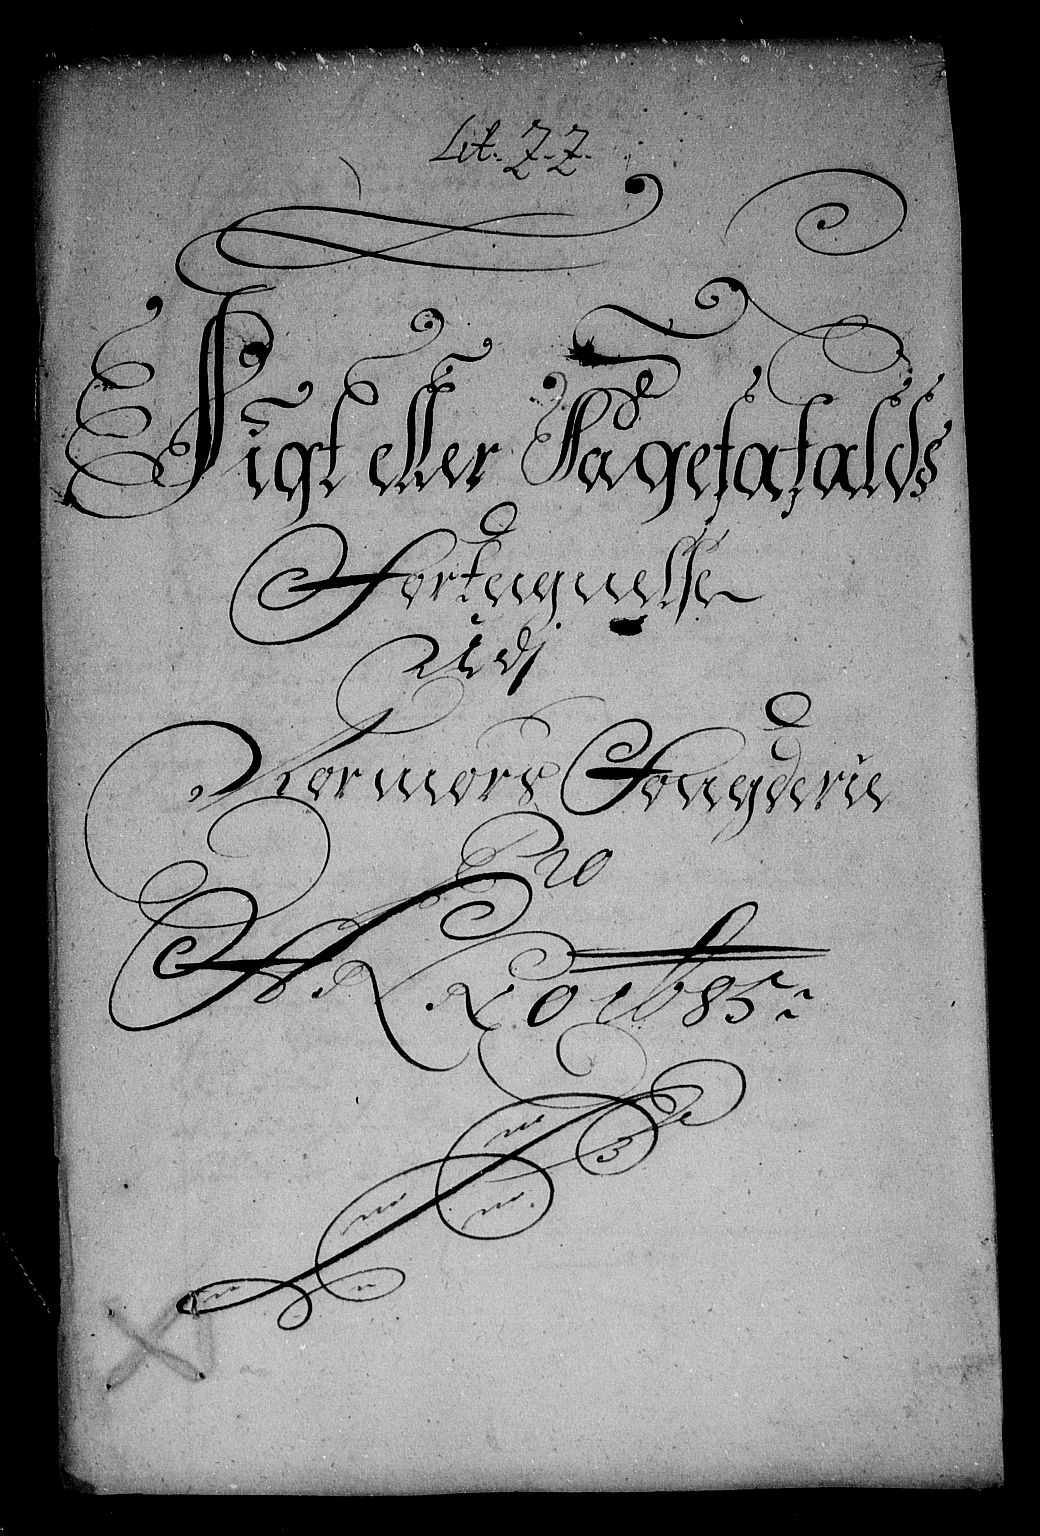 Lit. Z.Z.
Sigt eller Sagefafalds
Fortegnelse
Udj
Normørs Fougderie
Pro
ANNO 1685